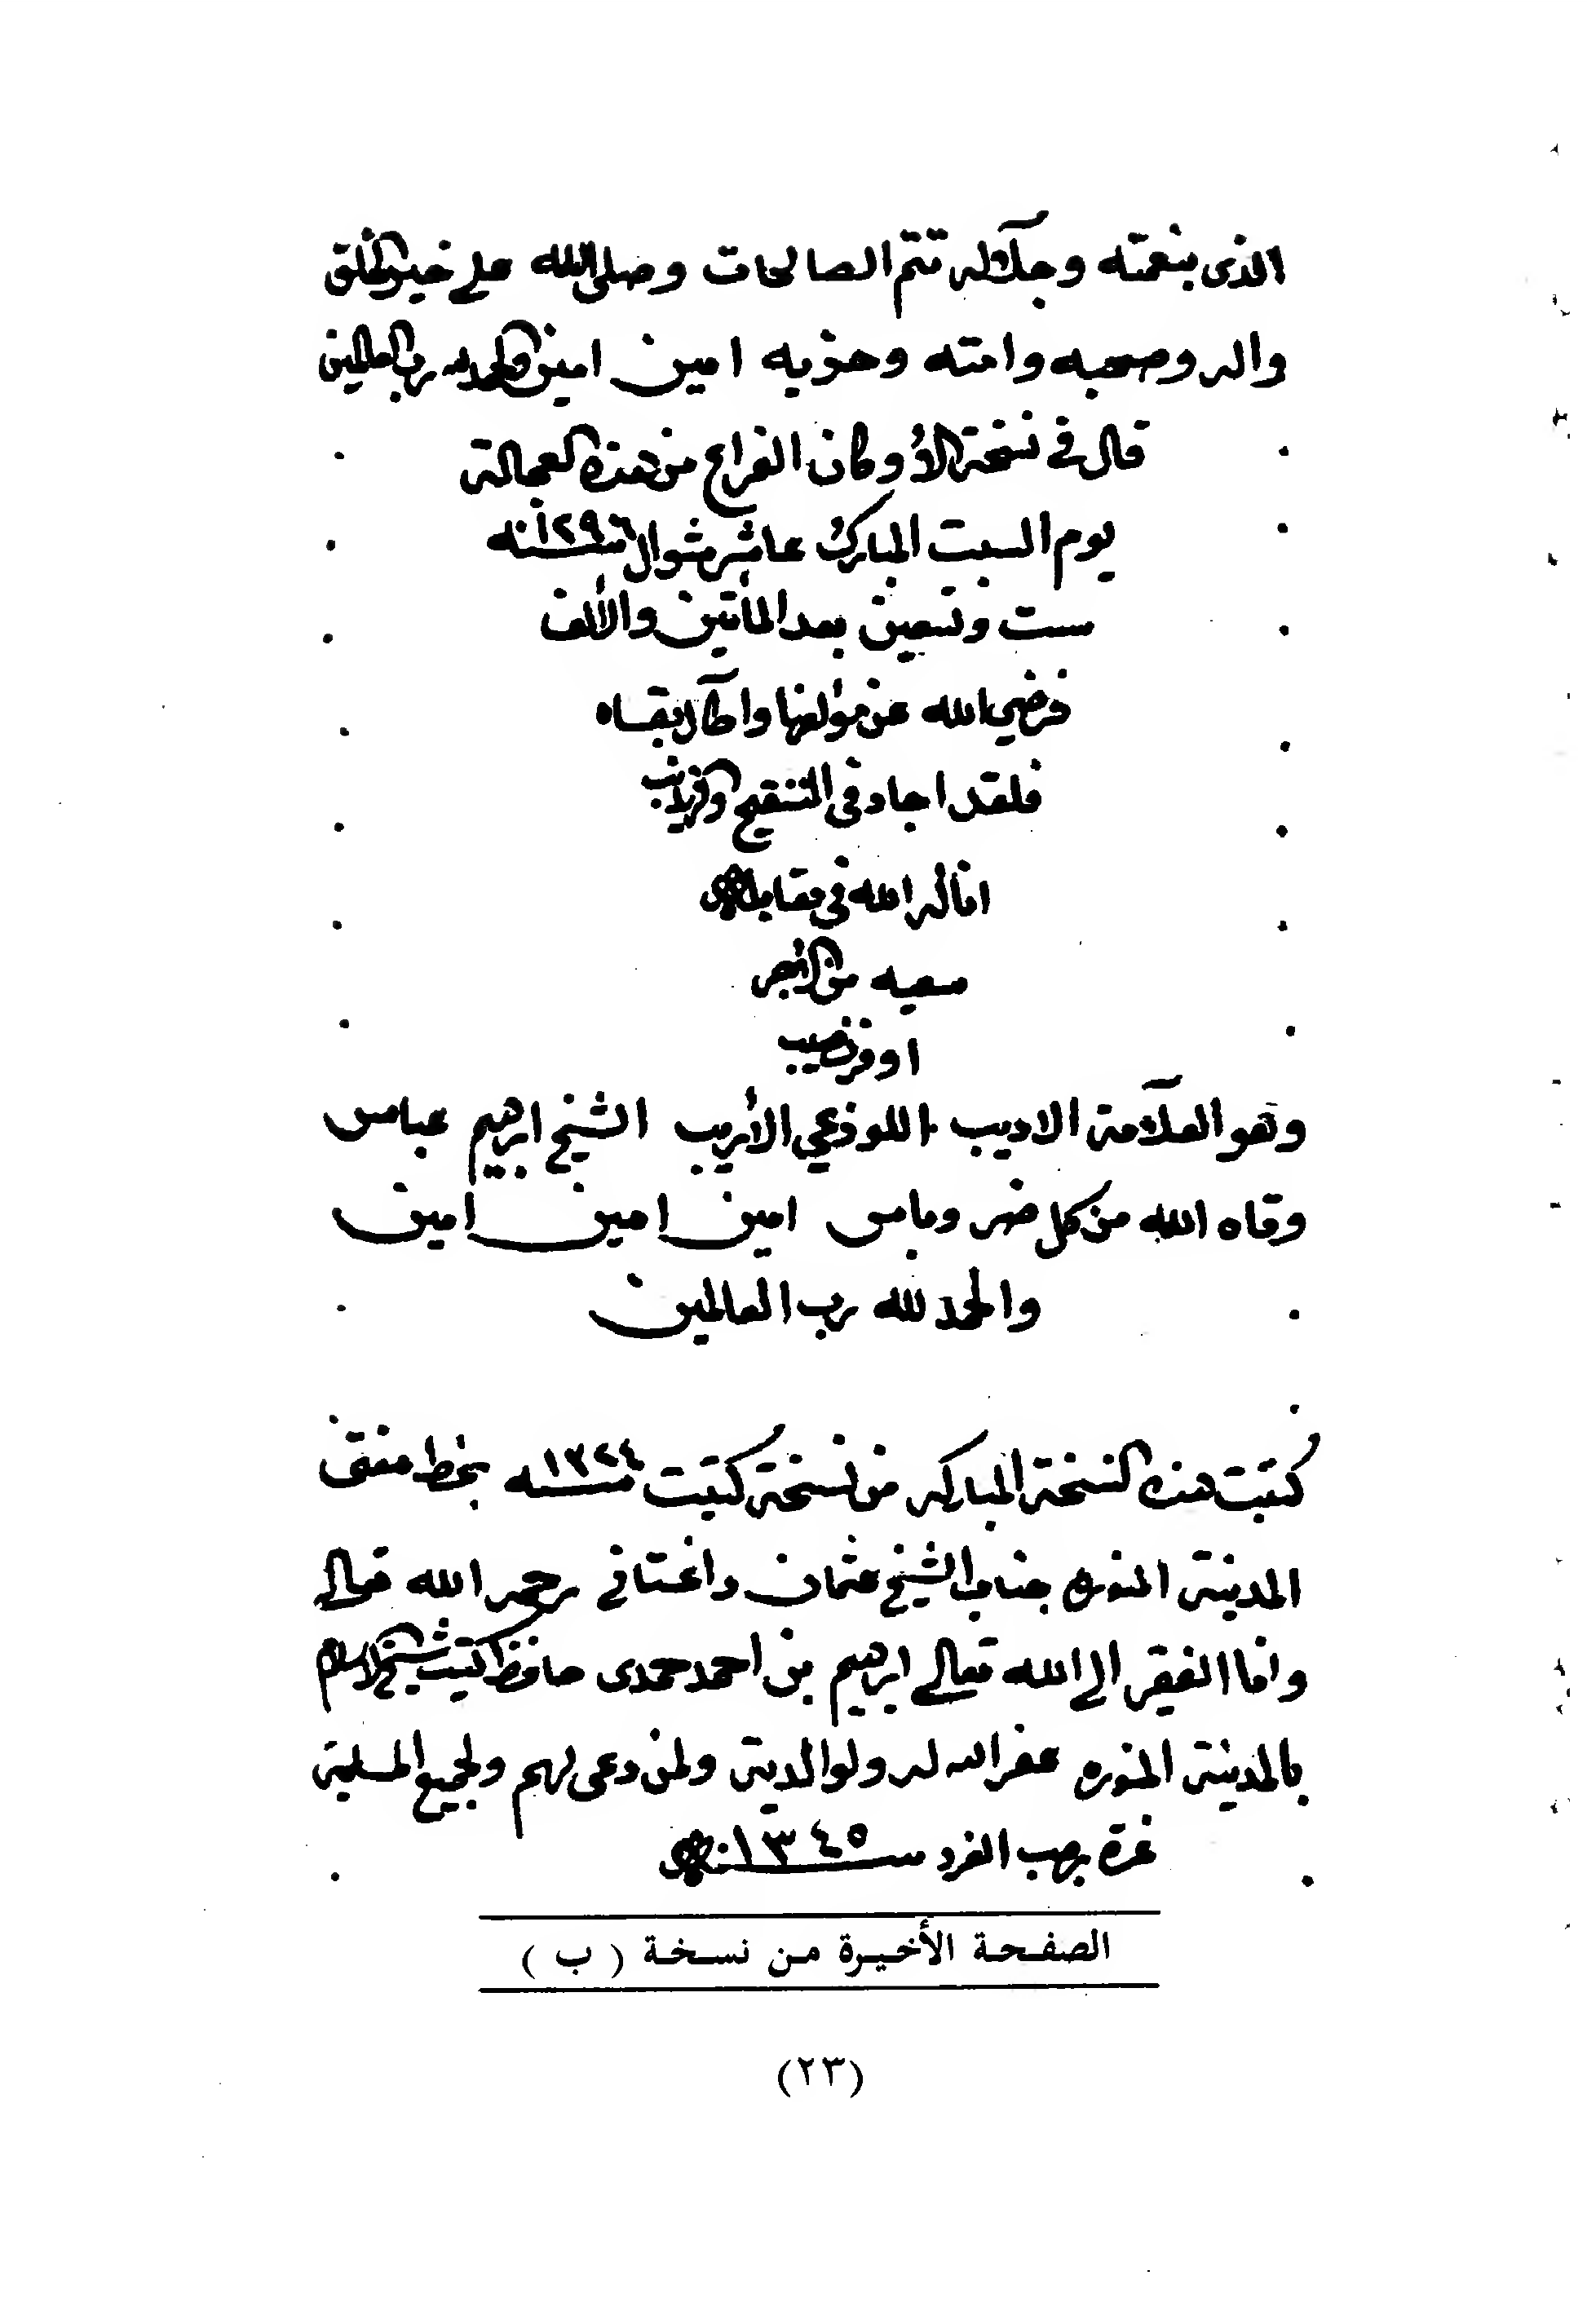 الذى بنعمته وجلاله تتم الصالحات وصلى الله على خير الخلق
واله وصحبه وامته وحزبه امين امين والحمد لله رب العالمين
قال في نسخة الأم وكان الفراغ من هذه العجالة
يوم السبت المبارك عاشر شوال سنه ١٢٩٦
ست وتسعين بعد المأتين والألف
فرضي الله عن مؤلفها واطال بقاه
فلقد اجاد في التنقيح والتهذيب
اناله الله في مقابلة
سعيه من الأجر
اوفر نصيب
وهو العلامة الاديب اللوذعي الأريب الشيخ ابرهيم عباس
وقاه الله من كل ضر وباس امين امين امين
والحمد لله رب العالمين
كتبت هذه النسخة المباركه من نسخة كتبت سنه ١٣٢٤ بخط مفتى
المدينة المنوره جناب الشيخ عثمان داغستانى رحمه الله تعالى
وانا الفقير الى الله تعالى ابرهيم بن احمد حمدى حافظ كتب شيخ الاسلام
بالمدينة المنوره غفر الله له ولوالديه ولمن دعى لهم ولجميع المسلمين
غرة رجب الفرد سنة ١٣٤٥
الصفحة الأخيرة من نسخة ( ب )
(٢٣)